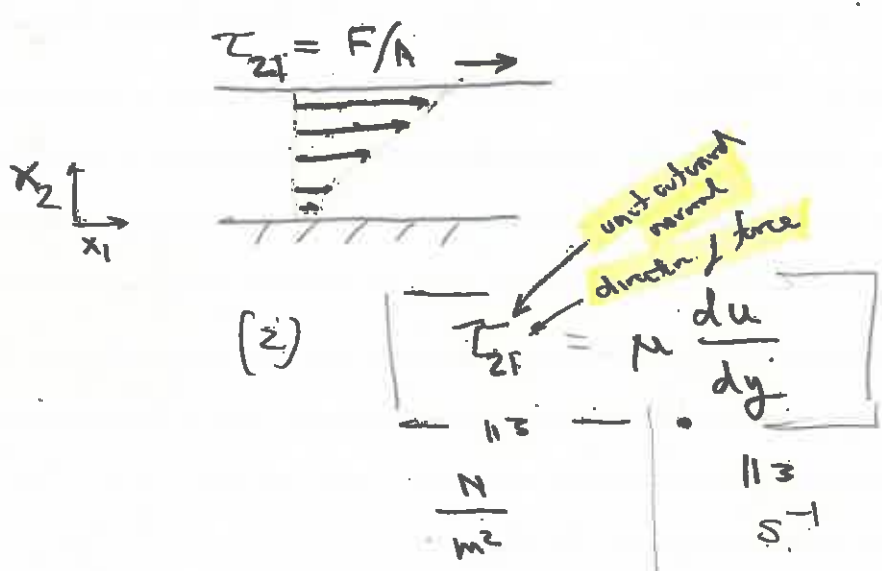 τ₂₁ = F/A
x₂
x₁
unit outward
normal
direction of force
(2)
τ₂₁ = μ du/dy
N/m²
s⁻¹